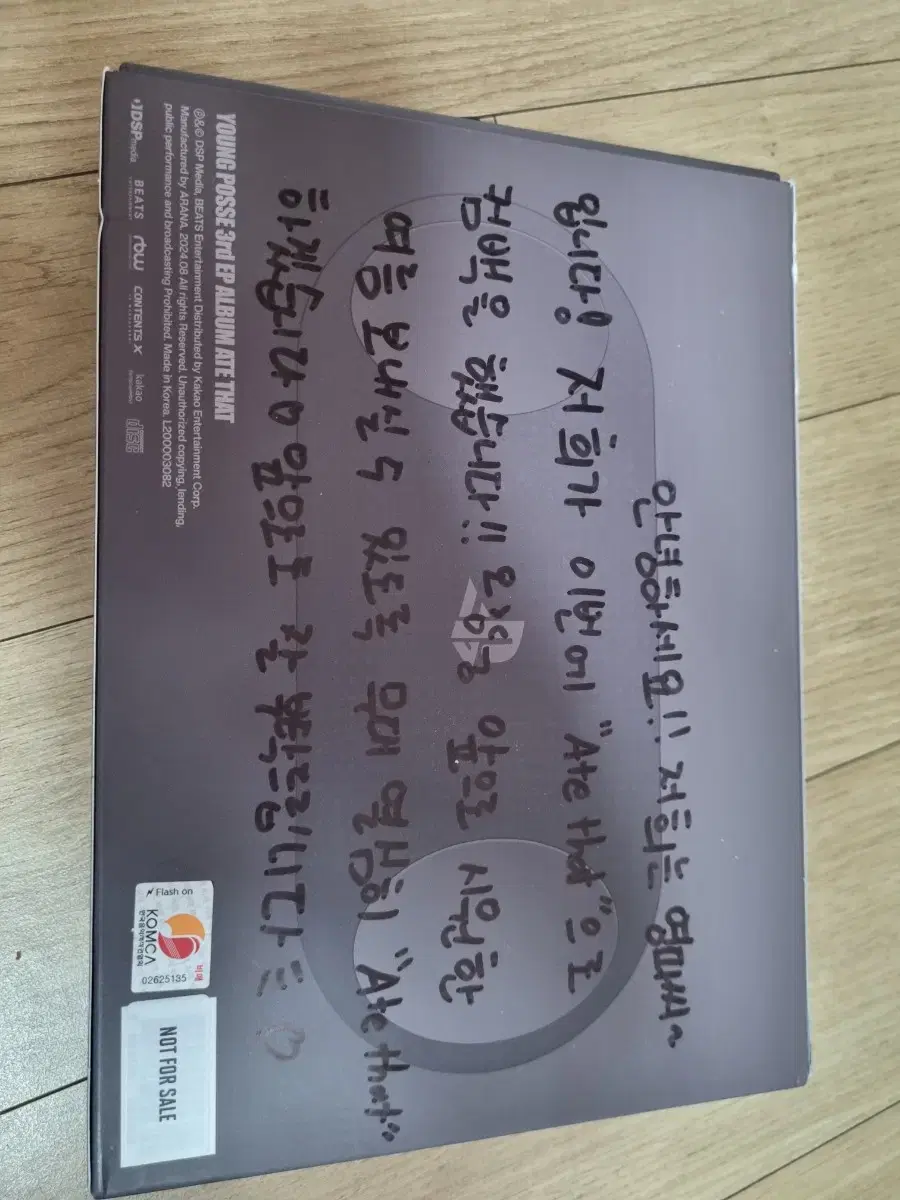 안녕하세요!! 저희는 영파씨~
입니다! 저희가 이번에 "Ate that"으로
컴백을 했습니다!! 앞으로 시원한
여름 보내실 수 있도록 무대 열심히 "Ate that"
하겠습니다! 앞으로 잘 부탁드립니다
YOUNG POSSE 3rd EP ALBUM ATE THAT
℗&© DSP Media, BEATS Entertainment Distributed by Kakao Entertainment Corp.
Manufactured by ARANA. 2024.08 All rights Reserved. Unauthorized copying, lending,
public performance and broadcasting Prohibited. Made in Korea. L200003082
DSPmedia BEATS rbw CONTENTS X kakao disc
Flash on
KOMCA
한국음악저작권협회
비매
02625135
NOT FOR SALE